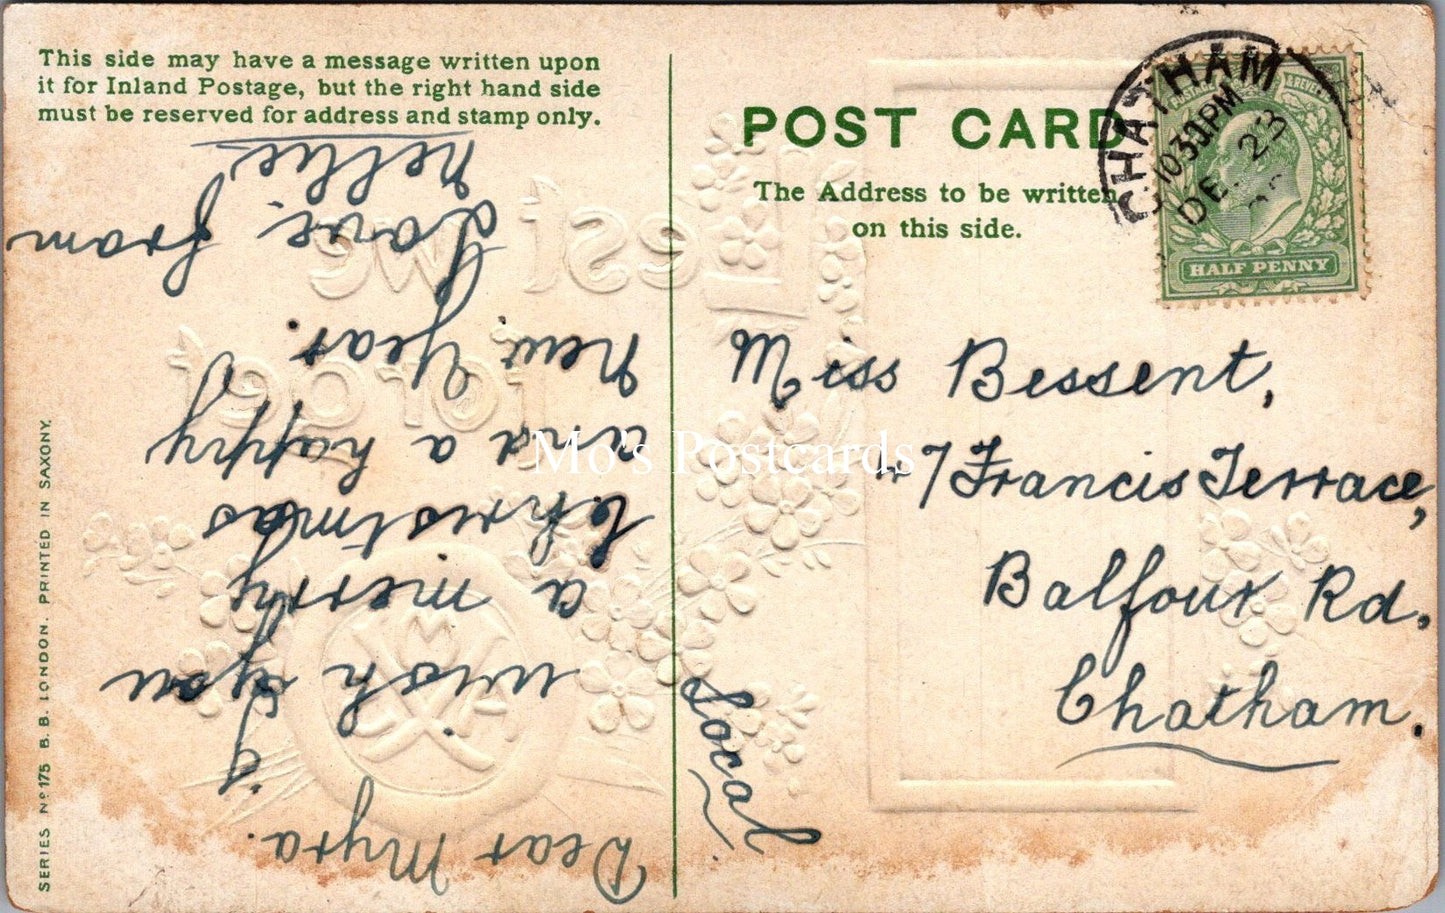 This side may have a message written upon
it for Inland Postage, but the right hand side
must be reserved for address and stamp only.
POST CARD
The Address to be written
on this side.
CHATHAM
1030PM
DE 23
HALF PENNY
Miss Bessent,
7 Francis Terrace,
Balfour Rd.
Chatham.
Local
Dear Myra.
I
wish you
a merry
Christmas
and a happy
New Year.
Love from
Nellie
Lest we
forget
SERIES No 175 B. B. LONDON. PRINTED IN SAXONY.
Mo's Postcards